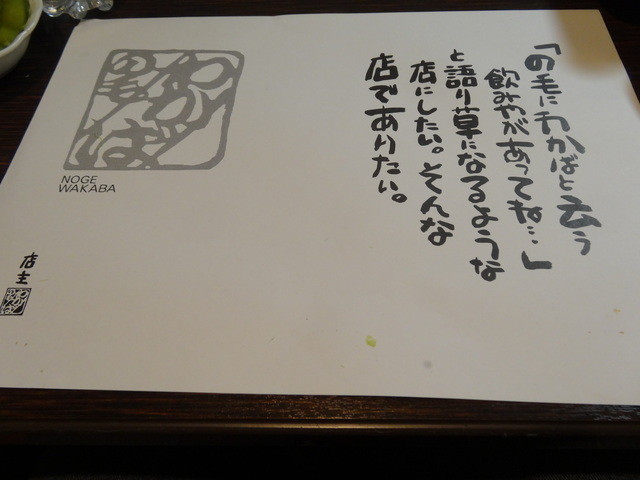 「の毛にわかばと云う
飲みやがあってね…」
と語り草になるような
店にしたい。そんな
店でありたい。
わかば
の毛
NOGE
WAKABA
店主